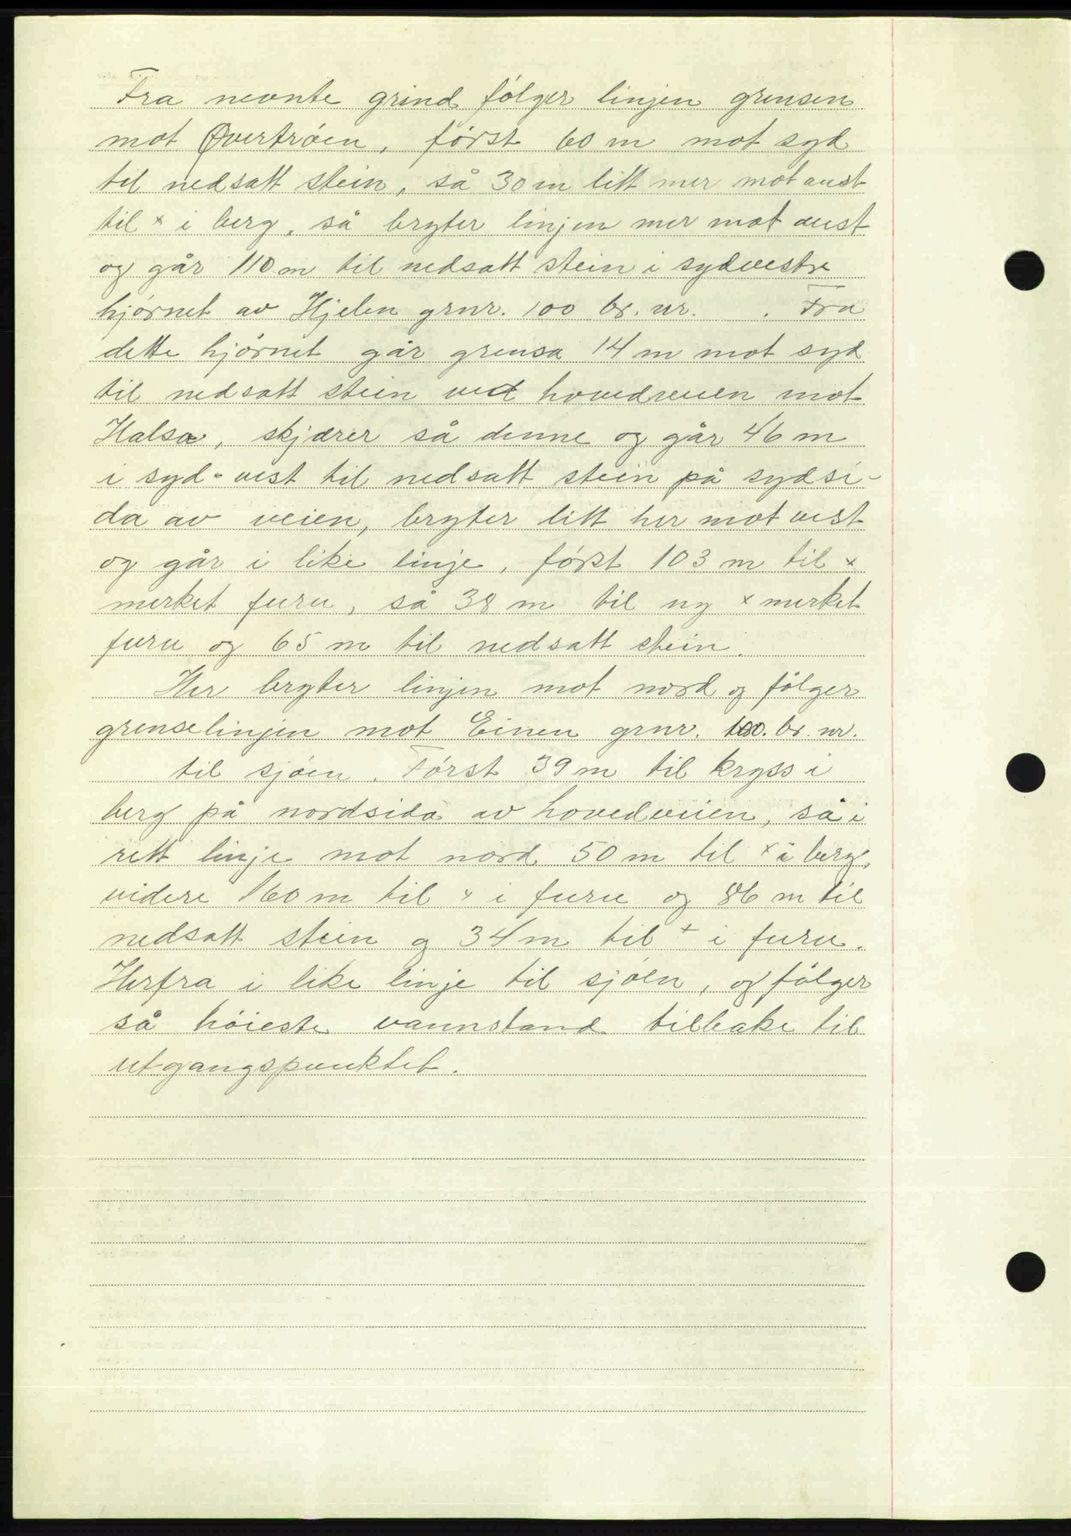 Fra nevnte grind følger linjen grensen
mot Øvertrøen, først 60 m mot syd
til nedsatt stein, så 30 m litt mer mot aust
til × i berg, så bryter linjen mer mot aust
og går 110 m til nedsatt stein i sydvestre
hjørnet av Hjelen grnr. 100 br. nr. . Fra
dette hjørnet går grensa 14 m mot syd
til nedsatt stein ved hovedveien mot
Halsa, skjærer så denne og går 46 m
i syd-vest til nedsatt stein på sydsi-
da av veien, bryter litt her mot vest
og går i like linje, først 103 m til ×
merket furu, så 38 m til ny × merket
furu og 65 m til nedsatt stein.
Her bryter linjen mot nord og følger
grenselinjen mot Einen grnr. 100. br. nr.
til sjøen. Først 39 m til kryss i
berg på nordsida av hovedveien, så i
rett linje mot nord 50 m til × i berg,
videre 160 m til × i furu og 86 m til
nedsatt stein og 34 m til × i furu.
Herfra i like linje til sjøen, og følger
så høieste vannstand tilbake til
utgangspunktet.